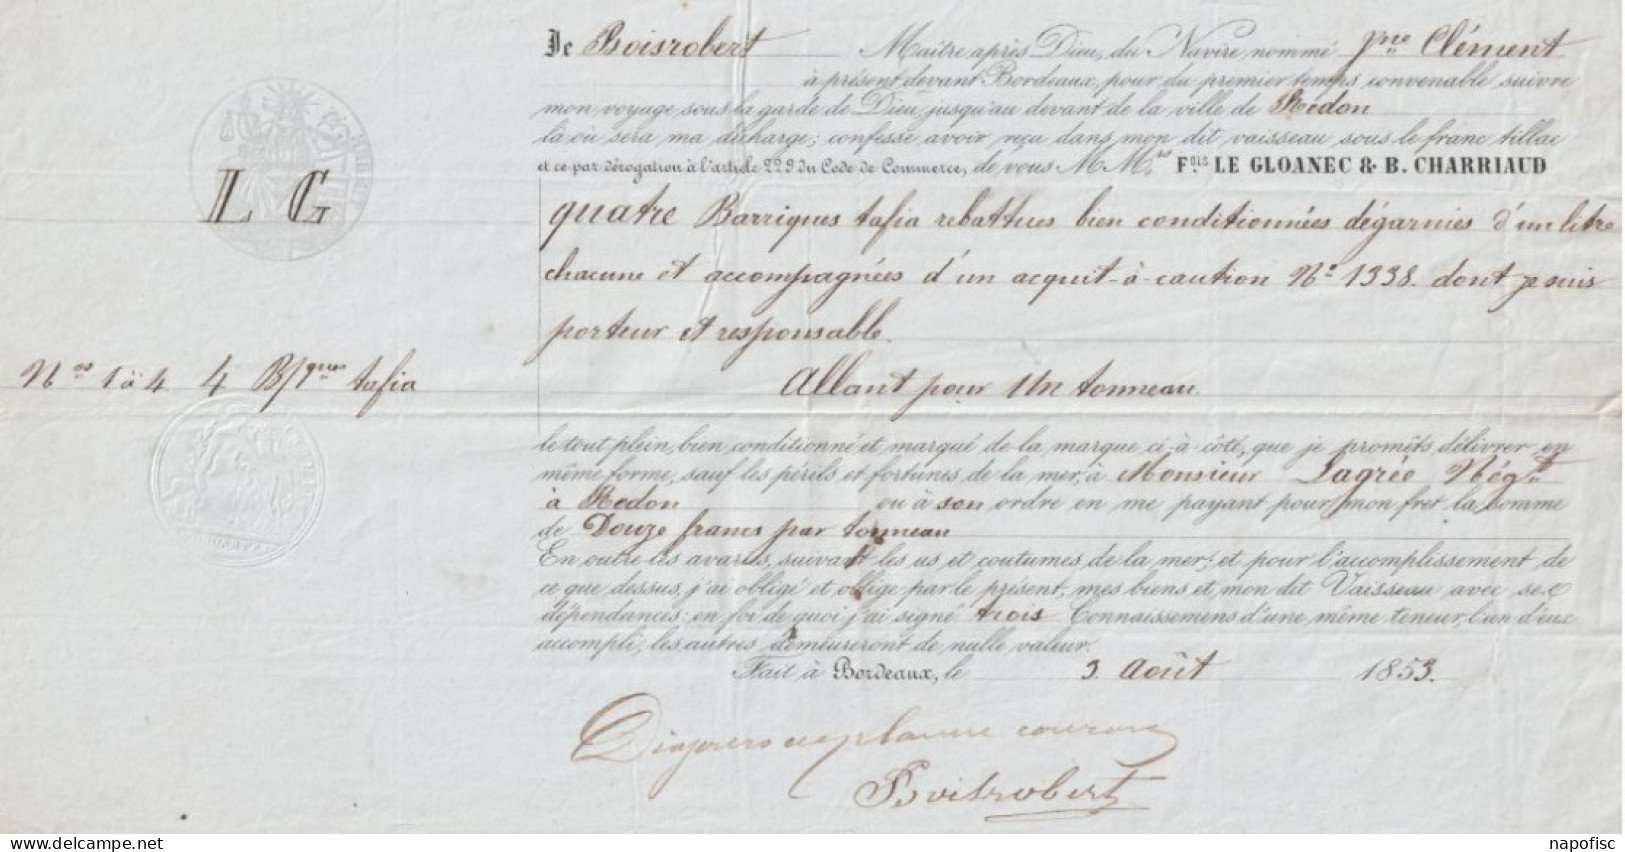 Je Boisrobert Maître après Dieu, du Navire, nommé Pnce Clément
à présent devant Bordeaux, pour du premier temps convenable suivre
mon voyage, sous la garde de Dieu, jusqu'au devant de la ville de Redon
là où sera ma décharge; confesse avoir reçu dans mon dit vaisseau sous le franc tillac
et ce par dérogation à l'article 229 du Code de Commerce, de vous M Mrs Fois LE GLOANEC & B. CHARRIAUD
L G
quatre Barriques tafia rebattues bien conditionnées dégarnies d'un litre
chacune et accompagnées d'un acquit-à-caution No 1338. dont je suis
porteur et responsable.
Nos 1 à 4 4 B/ques tafia
Allant pour Un tonneau.
le tout plein, bien conditionné et marqué de la marque ci-à-côté, que je promets délivrer en
même forme, sauf les périls et fortunes de la mer, à Monsieur Lagrée Négt
à Redon ou à son ordre en me payant pour mon fret la somme
de Douze francs par tonneau
En outre les avaries, suivant les us et coutumes de la mer; et pour l'accomplissement de
ce que dessus, j'ai obligé et oblige par le présent, mes biens et mon dit Vaisseau avec ses
dépendances; en foi de quoi j'ai signé trois Connaissemens d'une même teneur, l'un d'eux
accompli, les autres demeureront de nulle valeur.
Fait à Bordeaux, le 3 Août 1853.
Boisrobert
napofisc